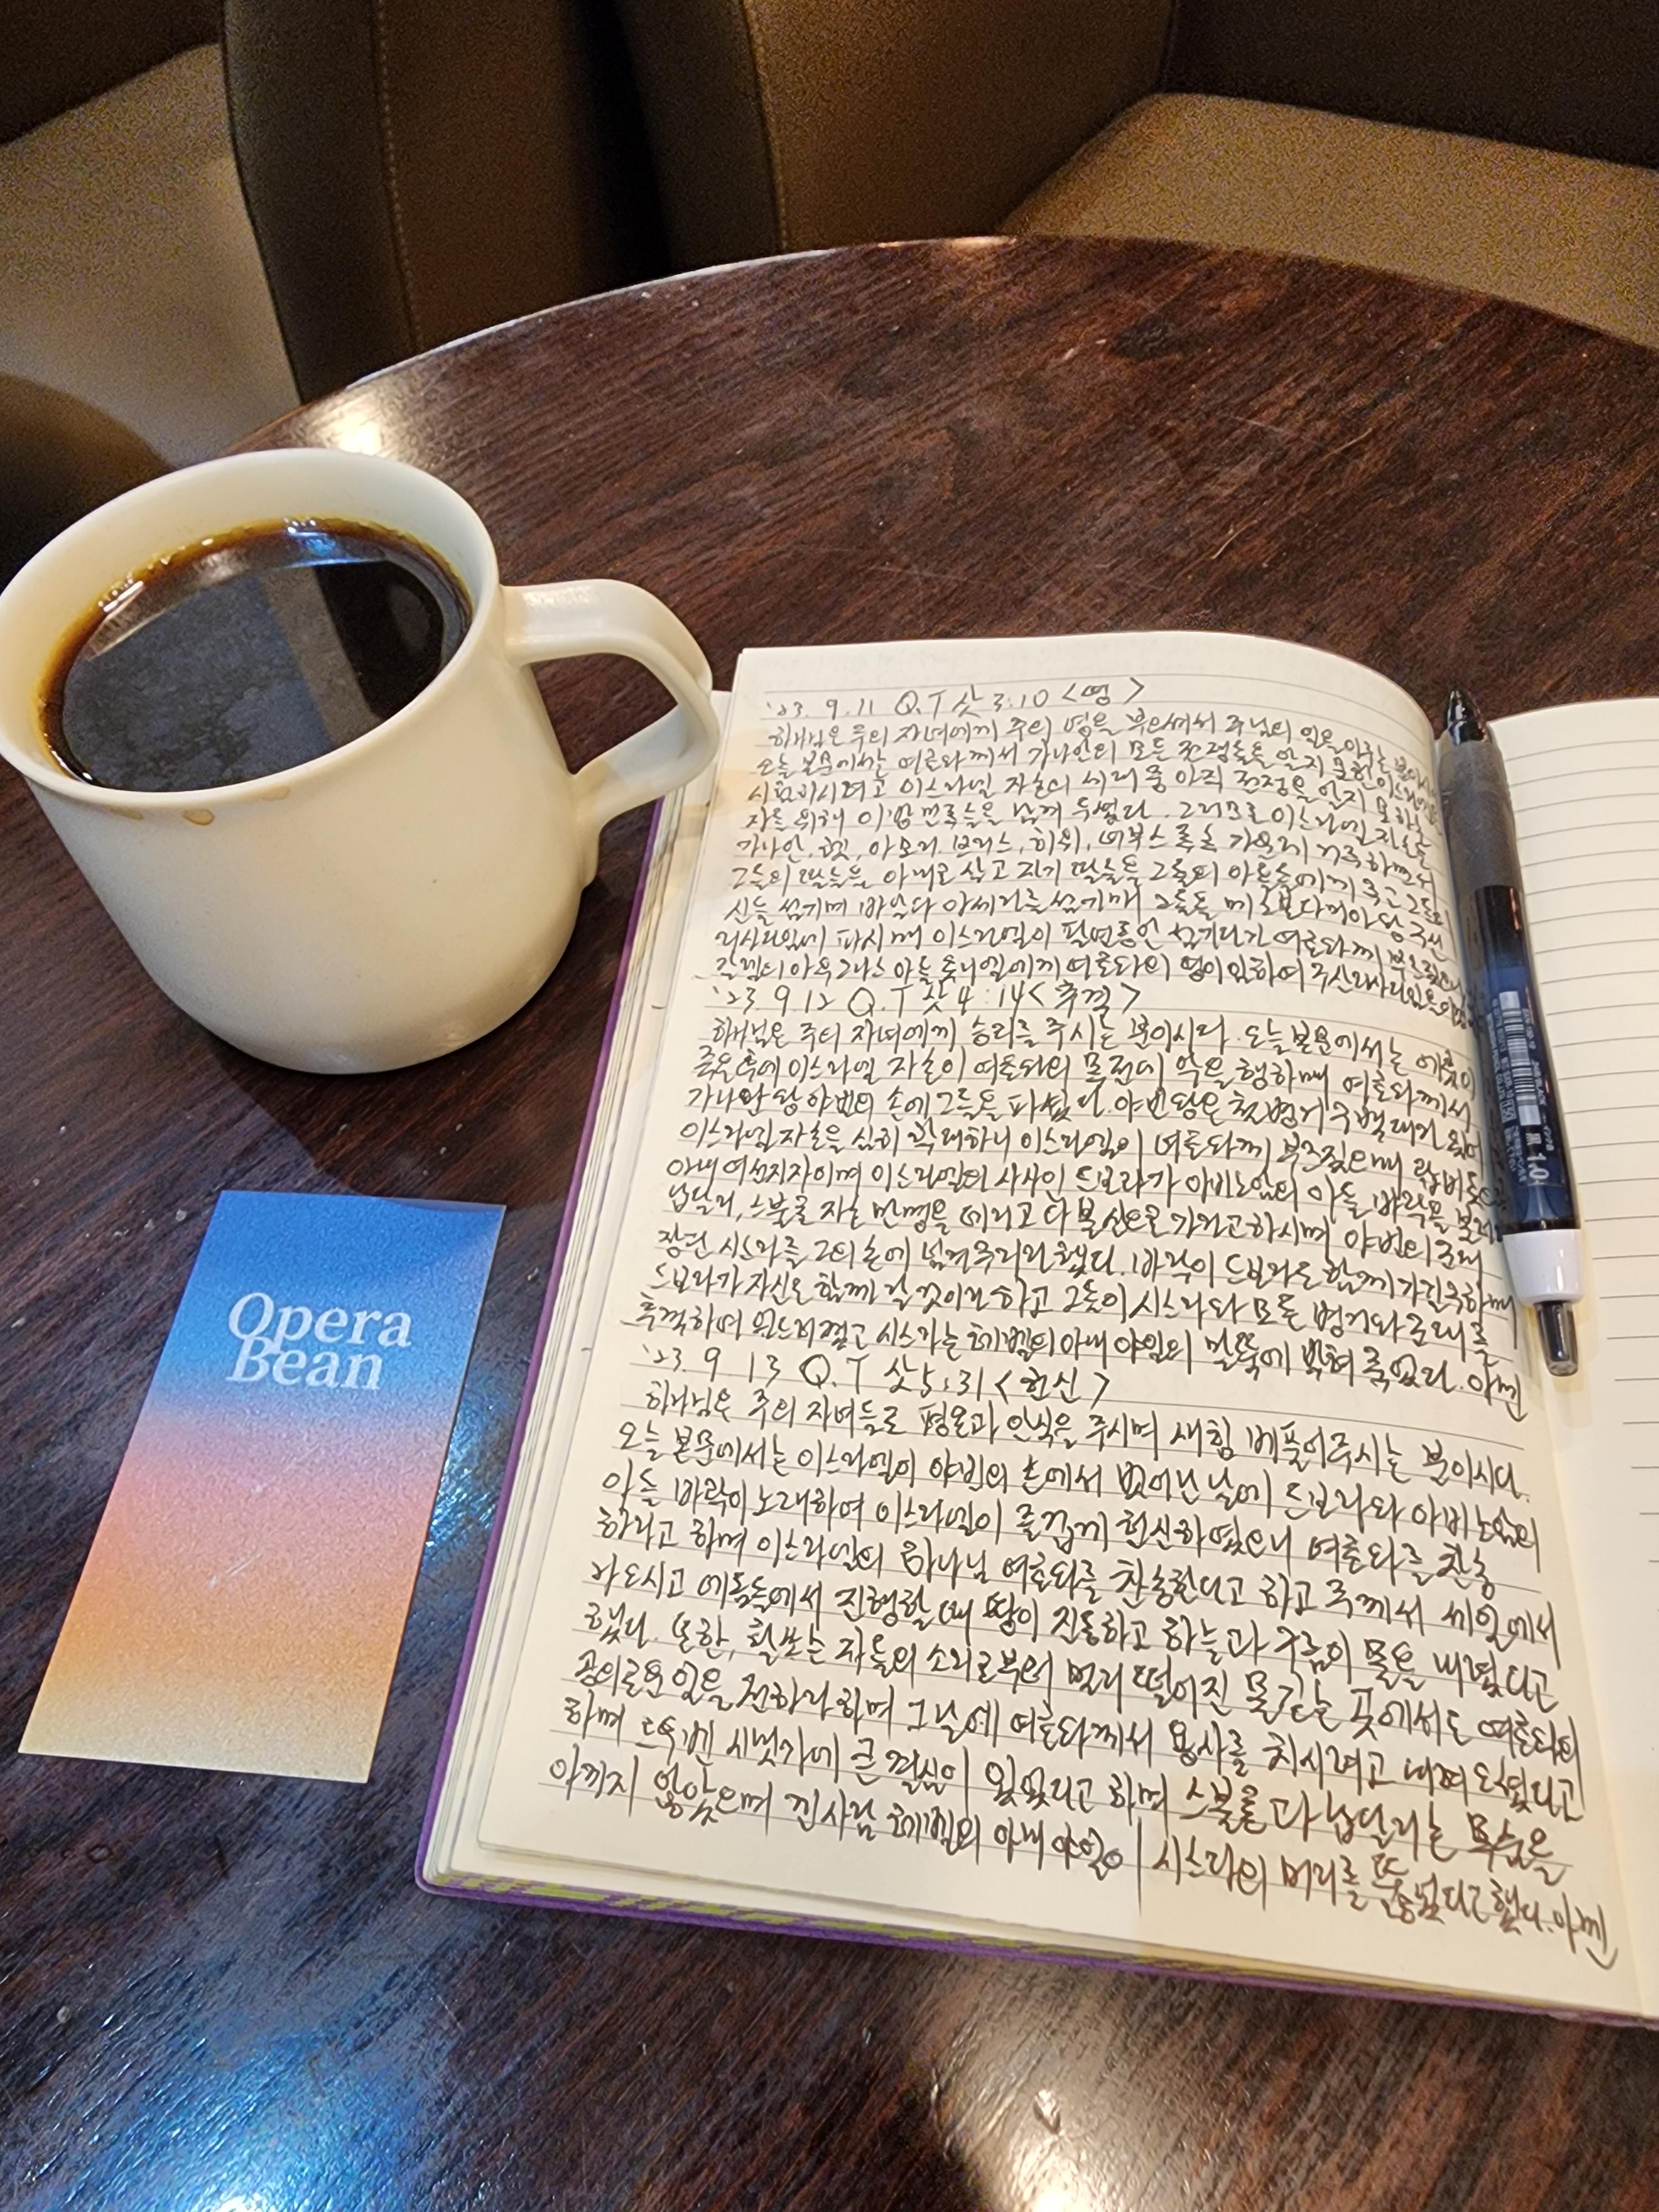 Opera
Bean
'23. 9. 11 Q.T 삿 3:10 <영>
하나님은 주의 자녀에게 주의 영을 부으셔서 주님의 일을 이루는
오늘 본문에서는 여호와께서 가나안의 모든 전쟁들을 알지 못한 이스라엘을
시험하시려고 이스라엘 자손의 세대 중 아직 전쟁을 알지 못하는
자들 위해 이방 민족들을 남겨 두셨다. 그러므로 이스라엘 자손은
가나안, 헷, 아모리, 브리스, 히위, 여부스 족속 가운데 거주하면서
그들의 딸들을 아내로 삼고 자기 딸들을 그들의 아들들에게 주고 그들의
신들 섬기며 바알과 아세라를 섬기매 그들을 메소보다미아 왕 구산
리사다임에 파시매 이스라엘이 팔년동안 섬기다가 여호와께 부르짖으매
갈렙의 아우 그나스 아들 옷니엘에게 여호와의 영이 임하여 구산 리사다임을
'23. 9. 12 Q.T 삿 4:14 <추격>
하나님은 주의 자녀에게 승리를 주시는 분이시다. 오늘 본문에서는 에훗이
죽은 후에 이스라엘 자손이 여호와의 목전에 악을 행하매 여호와께서
가나안 왕 야빈의 손에 그들을 파셨다. 야빈 왕은 철 병거 구백대가 있어
이스라엘 자손을 심히 학대하니 이스라엘이 여호와께 부르짖으매 랍비돗으
아내 여선지자이며 이스라엘의 사사인 드보라가 아비노암의 아들 바락을 불러
납달리, 스불론 자손 만명을 데리고 다볼산으로 가라고 하시며 야빈의 군대
장관 시스라를 그의 손에 넘겨주리라 했다. 바락이 드보라도 함께 가길 구하매
드보라가 자신도 함께 갈 것이라 하고 그들이 시스라와 모든 병거와 군대를
추격하여 엎드러졌고 시스라는 헤벨의 아내 야엘의 말뚝에 박혀 죽었다. 아멘
'23. 9. 13 Q.T 삿 5:31 <헌신>
하나님은 주의 자녀들로 평온과 안식을 주시며 새힘 베풀어주시는 분이시다.
오늘 본문에서는 이스라엘이 야빈의 손에서 벗어난 날에 드보라와 아비노암의
아들 바락이 노래하여 이스라엘이 즐겁게 헌신하였으니 여호와를 찬송
하라고 하며 이스라엘의 하나님 여호와를 찬송한다고 하고 주께서 세일에서
나오시고 에돔들에서 진행할 때 땅이 진동하고 하늘과 구름이 물을 내렸다고
했다. 또한, 활쏘는 자들의 소리로부터 멀리 떨어진 물긷는 곳에서도 여호와의
공의로운 일을 전하라 하며 그날에 여호와께서 용사를 치시려고 내려오셨다고
하며 르우벤 시냇가에 큰 결심이 있었다고 하며 스불론과 납달리는 목숨을
아끼지 않았으며 겐사람 헤벨의 아내 야엘이 시스라의 머리를 뚫었다고 했다. 아멘
1.0